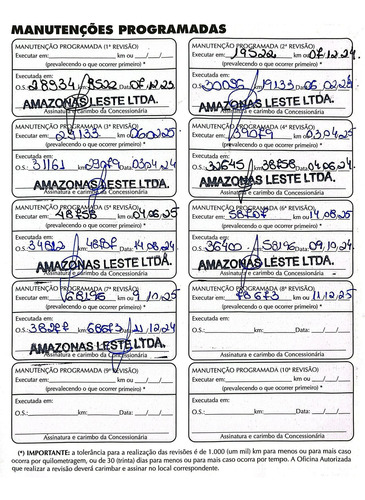 MANUTENÇÕES PROGRAMADAS
MANUTENÇÃO PROGRAMADA (1ª REVISÃO)
Executar em: km ou __/__/__
(prevalecendo o que ocorrer primeiro) *
Executada em:
O.S.: 28934 9522 Data: 07.12.23
AMAZONAS LESTE LTDA.
Assinatura e carimbo da Concessionária
MANUTENÇÃO PROGRAMADA (2ª REVISÃO)
Executar em: 19522 km ou 07.12.24
(prevalecendo o que ocorrer primeiro) *
Executada em:
O.S.: 30096 19133 Data: 06.02.24
AMAZONAS LESTE LTDA.
Assinatura e carimbo da Concessionária
MANUTENÇÃO PROGRAMADA (3ª REVISÃO)
Executar em: 29133 km ou
(prevalecendo o que ocorrer primeiro) *
Executada em:
O.S.: 31161 29079 Data: 03.04.24
AMAZONAS LESTE LTDA.
Assinatura e carimbo da Concessionária
MANUTENÇÃO PROGRAMADA (4ª REVISÃO)
Executar em: 39079 km ou 03.04.25
(prevalecendo o que ocorrer primeiro) *
Executada em:
O.S.: 32645 38758 Data: 04.06.24
AMAZONAS LESTE LTDA.
Assinatura e carimbo da Concessionária
MANUTENÇÃO PROGRAMADA (5ª REVISÃO)
Executar em: 48758 km ou 04.06.25
(prevalecendo o que ocorrer primeiro) *
Executada em:
O.S.: 34812 48707 Data: 14.08.24
AMAZONAS LESTE LTDA.
Assinatura e carimbo da Concessionária
MANUTENÇÃO PROGRAMADA (6ª REVISÃO)
Executar em: 58707 km ou 14.08.25
(prevalecendo o que ocorrer primeiro) *
Executada em:
O.S.: 36400 58196 Data: 09.10.24
AMAZONAS LESTE LTDA.
Assinatura e carimbo da Concessionária
MANUTENÇÃO PROGRAMADA (7ª REVISÃO)
Executar em: 68196 km ou 9.10.25
(prevalecendo o que ocorrer primeiro) *
Executada em:
O.S.: 38277 68673 Data: 11.12.24
AMAZONAS LESTE LTDA.
Assinatura e carimbo da Concessionária
MANUTENÇÃO PROGRAMADA (8ª REVISÃO)
Executar em: 78673 km ou 11.12.25
(prevalecendo o que ocorrer primeiro) *
Executada em:
O.S.: km: Data: __/__/__
Assinatura e carimbo da Concessionária
MANUTENÇÃO PROGRAMADA (9ª REVISÃO)
Executar em: km ou __/__/__
(prevalecendo o que ocorrer primeiro) *
Executada em:
O.S.: km: Data: __/__/__
Assinatura e carimbo da Concessionária
MANUTENÇÃO PROGRAMADA (10ª REVISÃO)
Executar em: km ou __/__/__
(prevalecendo o que ocorrer primeiro) *
Executada em:
O.S.: km: Data: __/__/__
Assinatura e carimbo da Concessionária
(*) IMPORTANTE: a tolerância para a realização das revisões é de 1.000 (um mil) km para menos ou para mais caso
ocorra por quilometragem, ou de 30 (trinta) dias para menos ou para mais caso ocorra por tempo. A Oficina Autorizada
que realizar a revisão deverá carimbar e assinar no local correspondente.